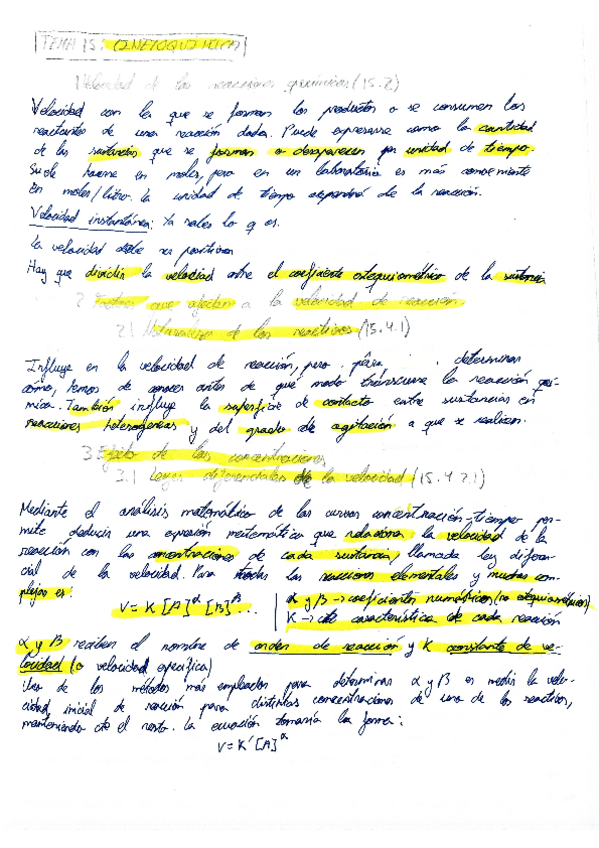 TEMA 15: CINETOQUIMICA
Velocidad de las reacciones químicas (15.2)
Velocidad con la que se forman los productos o se consumen los
reactantes de una reacción dada. Puede expresarse como la cantidad
de las sustancias que se forman o desaparecen por unidad de tiempo.
Suele hacerse en moles, pero en un laboratorio es más conveniente
en moles/litro. La unidad de tiempo dependrá de la reacción.
Velocidad instantánea: Ya sabes lo q es.
La velocidad debe ser positiva
Hay que dividir la velocidad entre el coeficiente estequiométrico de la sustancia
2 Factores que afectan a la velocidad de reacción
2.1 Naturaleza de los reactivos (15.4.1)
Influye en la velocidad de reacción, pero para determinar
cómo, temos de conocer antes de qué modo transcurre la reacción quí-
mica. También influye la superficie de contacto entre sustancias en
reacciones heterogeneas y del grado de agitación a que se realicen.
3 Efecto de las concentraciones
3.1 Leyes diferenciales de la velocidad (15.4.2.1)
Mediante el análisis matemático de las curvas concentración-tiempo per-
mite deducir una expresión matemática que relaciona la velocidad de la
reacción con las concentraciones de cada sustancia, llamada ley diferen-
cial de la velocidad. Para todas las reacciones elementales y muchas com-
plejas es:
V = K [A]^α [B]^β ...
α y β → coeficientes numéricos (no estequiométricos)
K → cte característica de cada reacción
α y β reciben el nombre de orden de reacción y K constante de ve-
locidad (o velocidad específica)
Uno de los métodos más empleados para determinar α y β es medir la velo-
cidad inicial de reacción para distintas concentraciones de uno de los reactivos,
manteniendo cte el resto. La ecuación tomaría la forma:
V = K' [A]^α